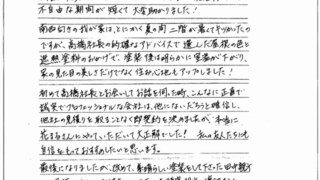 不自由な期間が短くて大変助かりました!
南西向きの我が家は、とにかく夏の間二階が暑くてキツかったの
ですが、高橋社長の的確なアドバイスで選んだ屋根の色と
遮熱塗料のおかげで、塗装後は明らかに室温が下がり、
家の見た目の美しさだけでなく住み心地もアップしました!
初めて高橋社長とお会いしてお話を伺った時、こんなに正直で
誠実でプロフェッショナルな会社は、他にないだろうと確信し、
他社の見積りを取ることなく即契約を決めましたが、本当に
花まるさんにやっていただいて大正解でした! 私の友人たちにも
自信をもっておすすめしたいと思います。
最後になりましたが、改めて、素晴らしい塗装をして下さった田中親方